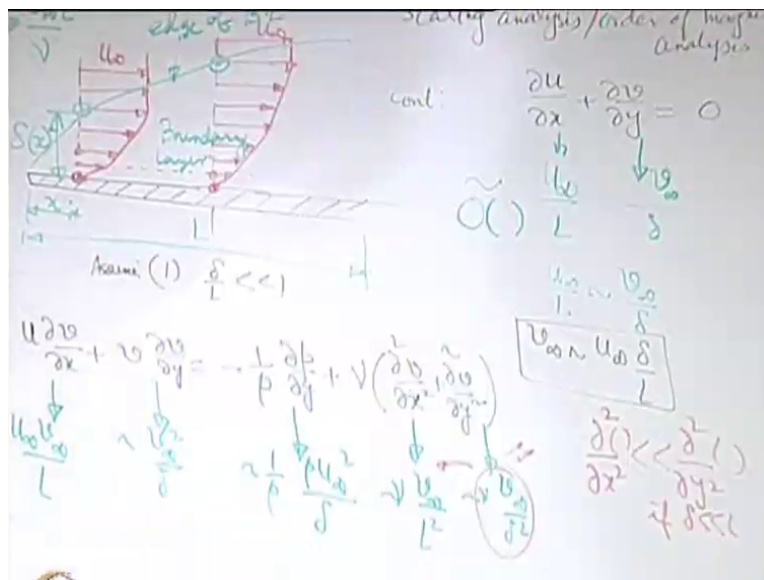 ν
edge of
u∞
u∞
Scaling analysis/order of
analysis
δ(x)
Boundary
layer
x
L
Assume (1) δ/L <<1
cont: ∂u/∂x + ∂v/∂y = 0
O( ) u∞/L v∞/δ
u∞/L ~ v∞/δ
v∞ ~ u∞ δ/L
u ∂v/∂x + v ∂v/∂y = - 1/ρ ∂p/∂y + ν(∂²v/∂x² + ∂²v/∂y²)
u∞v∞/L ~ v∞²/δ ~ 1/ρ ρu∞²/δ ~ ν v∞/L² ~ ν v∞/δ²
∂²( )/∂x² << ∂²( )/∂y²
if δ<<L